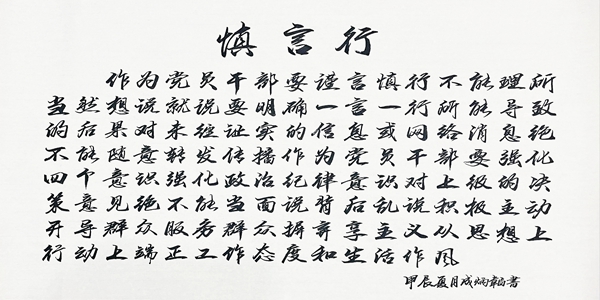 慎言行
作为党员干部要谨言慎行不能理所
当然想说就说要明确一言一行所能导致
的后果对未经证实的信息或网络消息绝
不能随意转发传播作为党员干部要强化
四个意识强化政治纪律意识对上级的决
策意见绝不能当面说背后乱说积极主动
开导群众服务群众摒弃享主义从思想上
行动上端正工作态度和生活作风
甲辰夏月成炳韬书